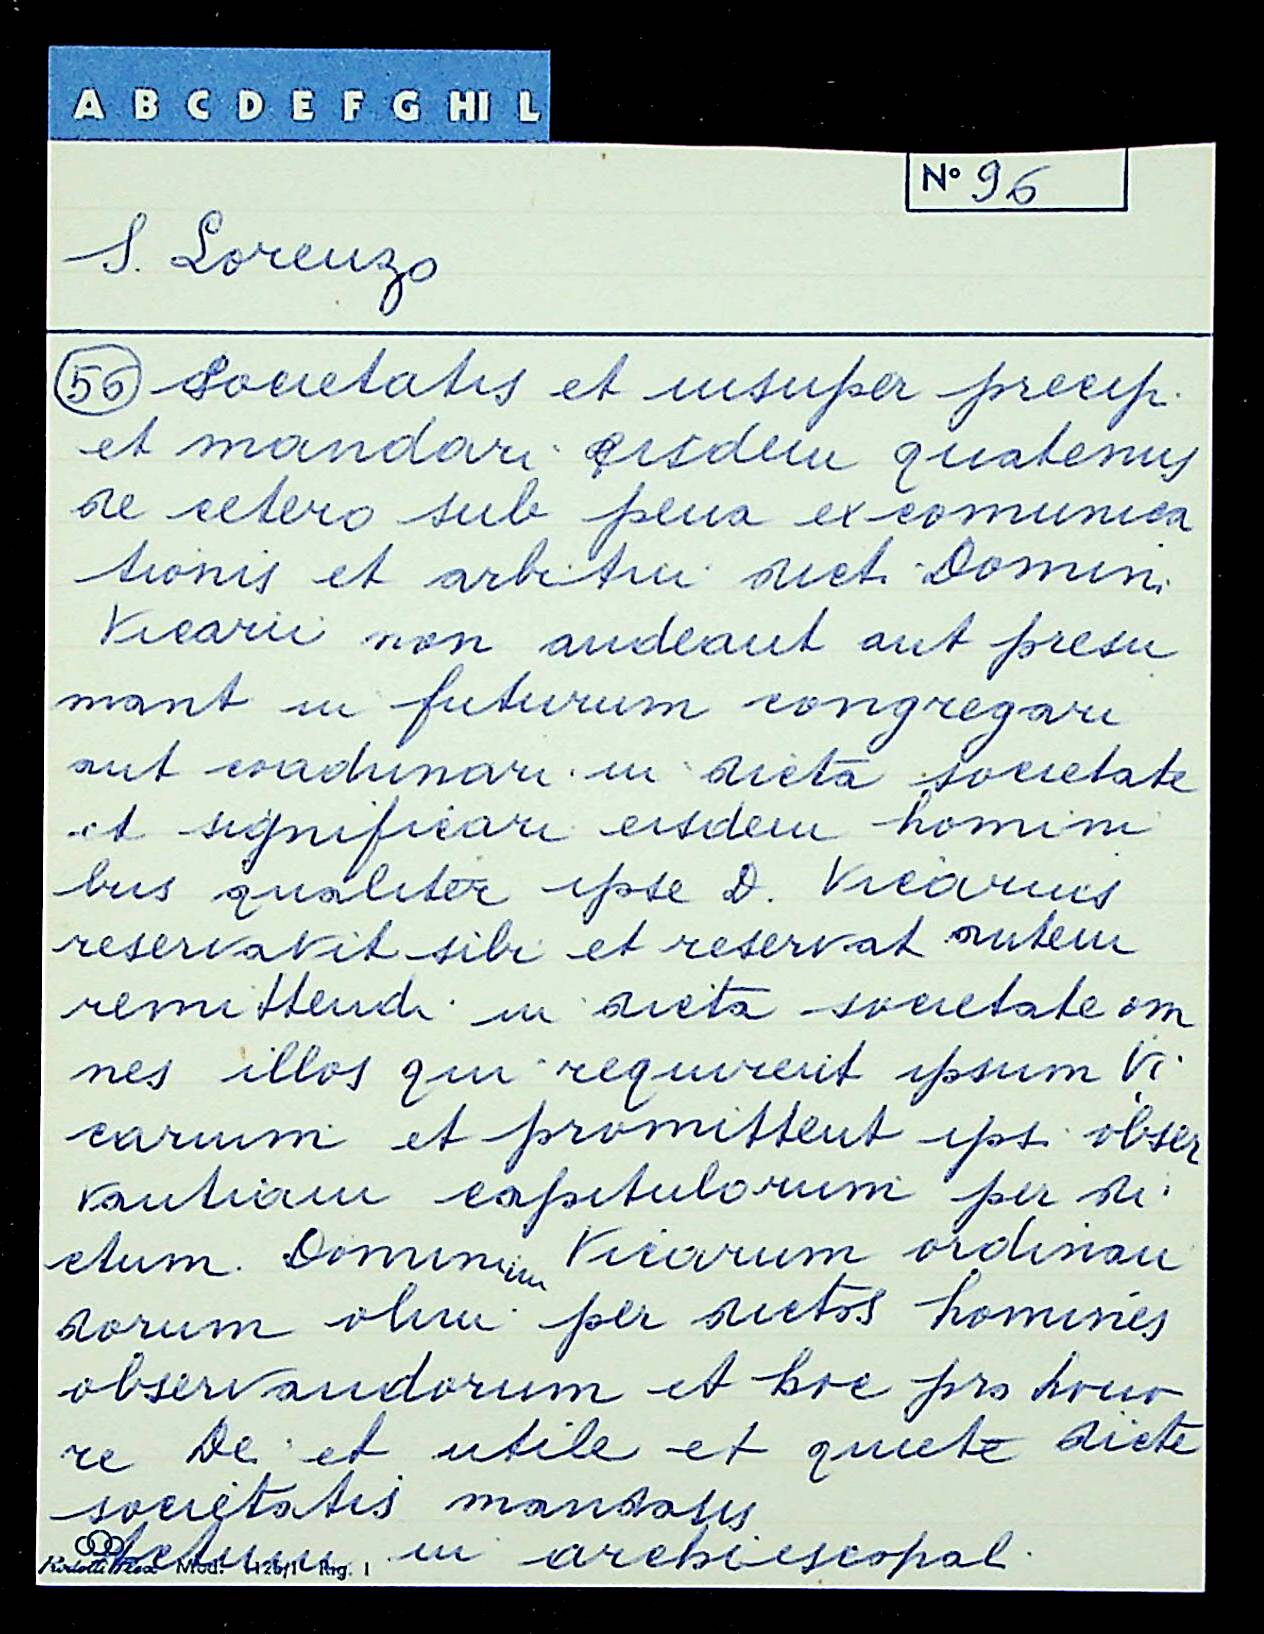 A B C D E F G HI L
Nº 96
S. Lorenzo
56 Societatis et insuper precip.
et mandari eisdem quatenus
de cetero sub pena excomunica
tionis et arbitrii dicti Domini
Vicarii non audeant aut presu
mant in futurum congregari
aut coadunari in dicta societate
et significari eisdem homini
bus qualiter ipse D. Vicarius
reservavit sibi et reservat autem
remittendi in dicta societate om
nes illos qui requirent ipsum Vi
carium et promittent ipsi obser
vantiam capitulorum per di
ctum. Dominum Vicarium ordinan
dorum olim per dictos homines
observandorum et hoc pro hono
re Dei et utile et quiete dicte
societatis mandatis
Actum in archiescopal.
Mod. Rig. 1